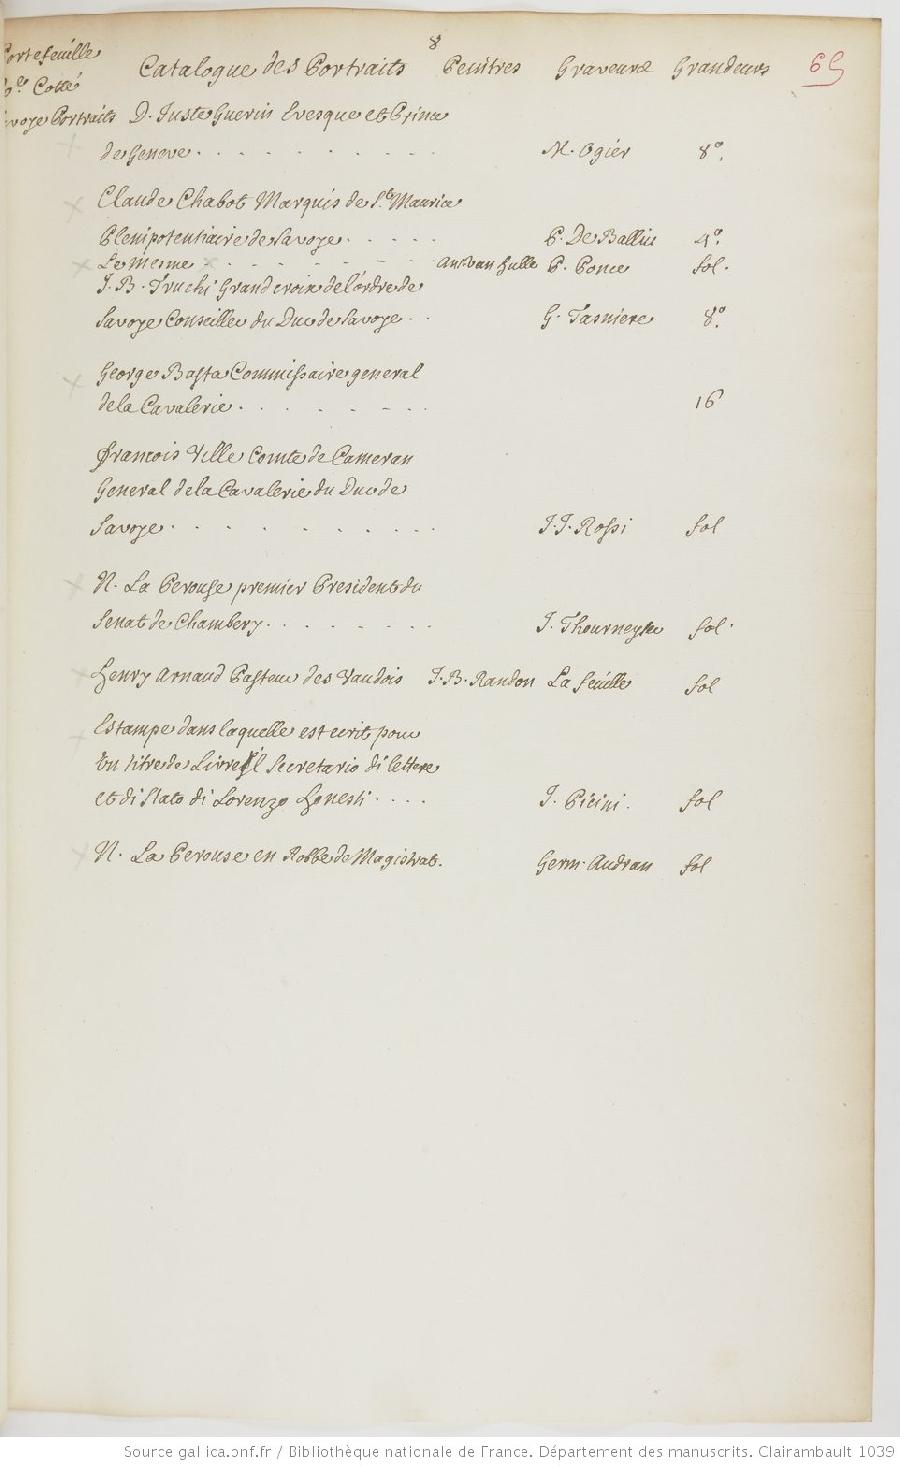 8
Portefeuille Catalogue des Portraits Peintres Graveurs Grandeurs 69
Cotté
Savoye Portraits D. Juste Guerin Evesque et Prince
de Geneve . . . . . . . . . M. Ogier 8°.
Claude Chabot Marquis de St. Maurice
Plenipotentiaire de Savoye . . . . . P. De Balliu 4°.
Le mesme . . . . . . . . Ans. van hulle P. Ponce fol.
J. B. Truchi Grand croix de l'ordre de
Savoye Conseiller du Duc de Savoye . . G. Tasniere 8°
George Basta Commissaire general
de la Cavalerie . . . . . . . 16
francois Ville Comte de Cameran
General de la Cavalerie du Duc de
Savoye . . . . . . . . . J. J. Rossi fol
N. La Perouse premier President du
Senat de Chambery . . . . . . . J. Thourneysen fol.
henry Arnaud Pasteur des Vaudois J. B. Randon La feüille fol
Estampe dans laquelle est ecrit pour
un titre de Livre Il Secretario di lettere
et di stato di Lorenzo honesti . . . . J. Picini . fol
N. La Perouse en Robbe de Magistrat. Germ. Audran fol
Source gallica.bnf.fr / Bibliothèque nationale de France. Département des manuscrits. Clairambault 1039